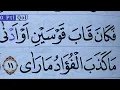 فَكَانَ قَابَ قَوْسَيْنِ اَوْ اَدْنٰى
مَا كَذَبَ الْفُؤَادُ مَا رَاٰى ١١